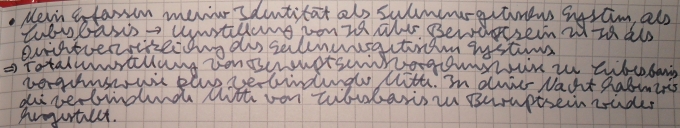 • Mein Erfassen meiner Identität als Seelenenergetisches System, als
Liebesbasis → Umstellung von Ich über Bewusstsein zu Ich als
des Seelenenergetischen Systems
⇒ Totalumstellung von Bewusstseinsvorgehensweise zu Liebesbasis
vorgehensweise plus verbindender Mitte. In deiner Nacht haben wir
die verbindende Mitte von Liebesbasis zu Bewusstsein wieder
hergestellt.